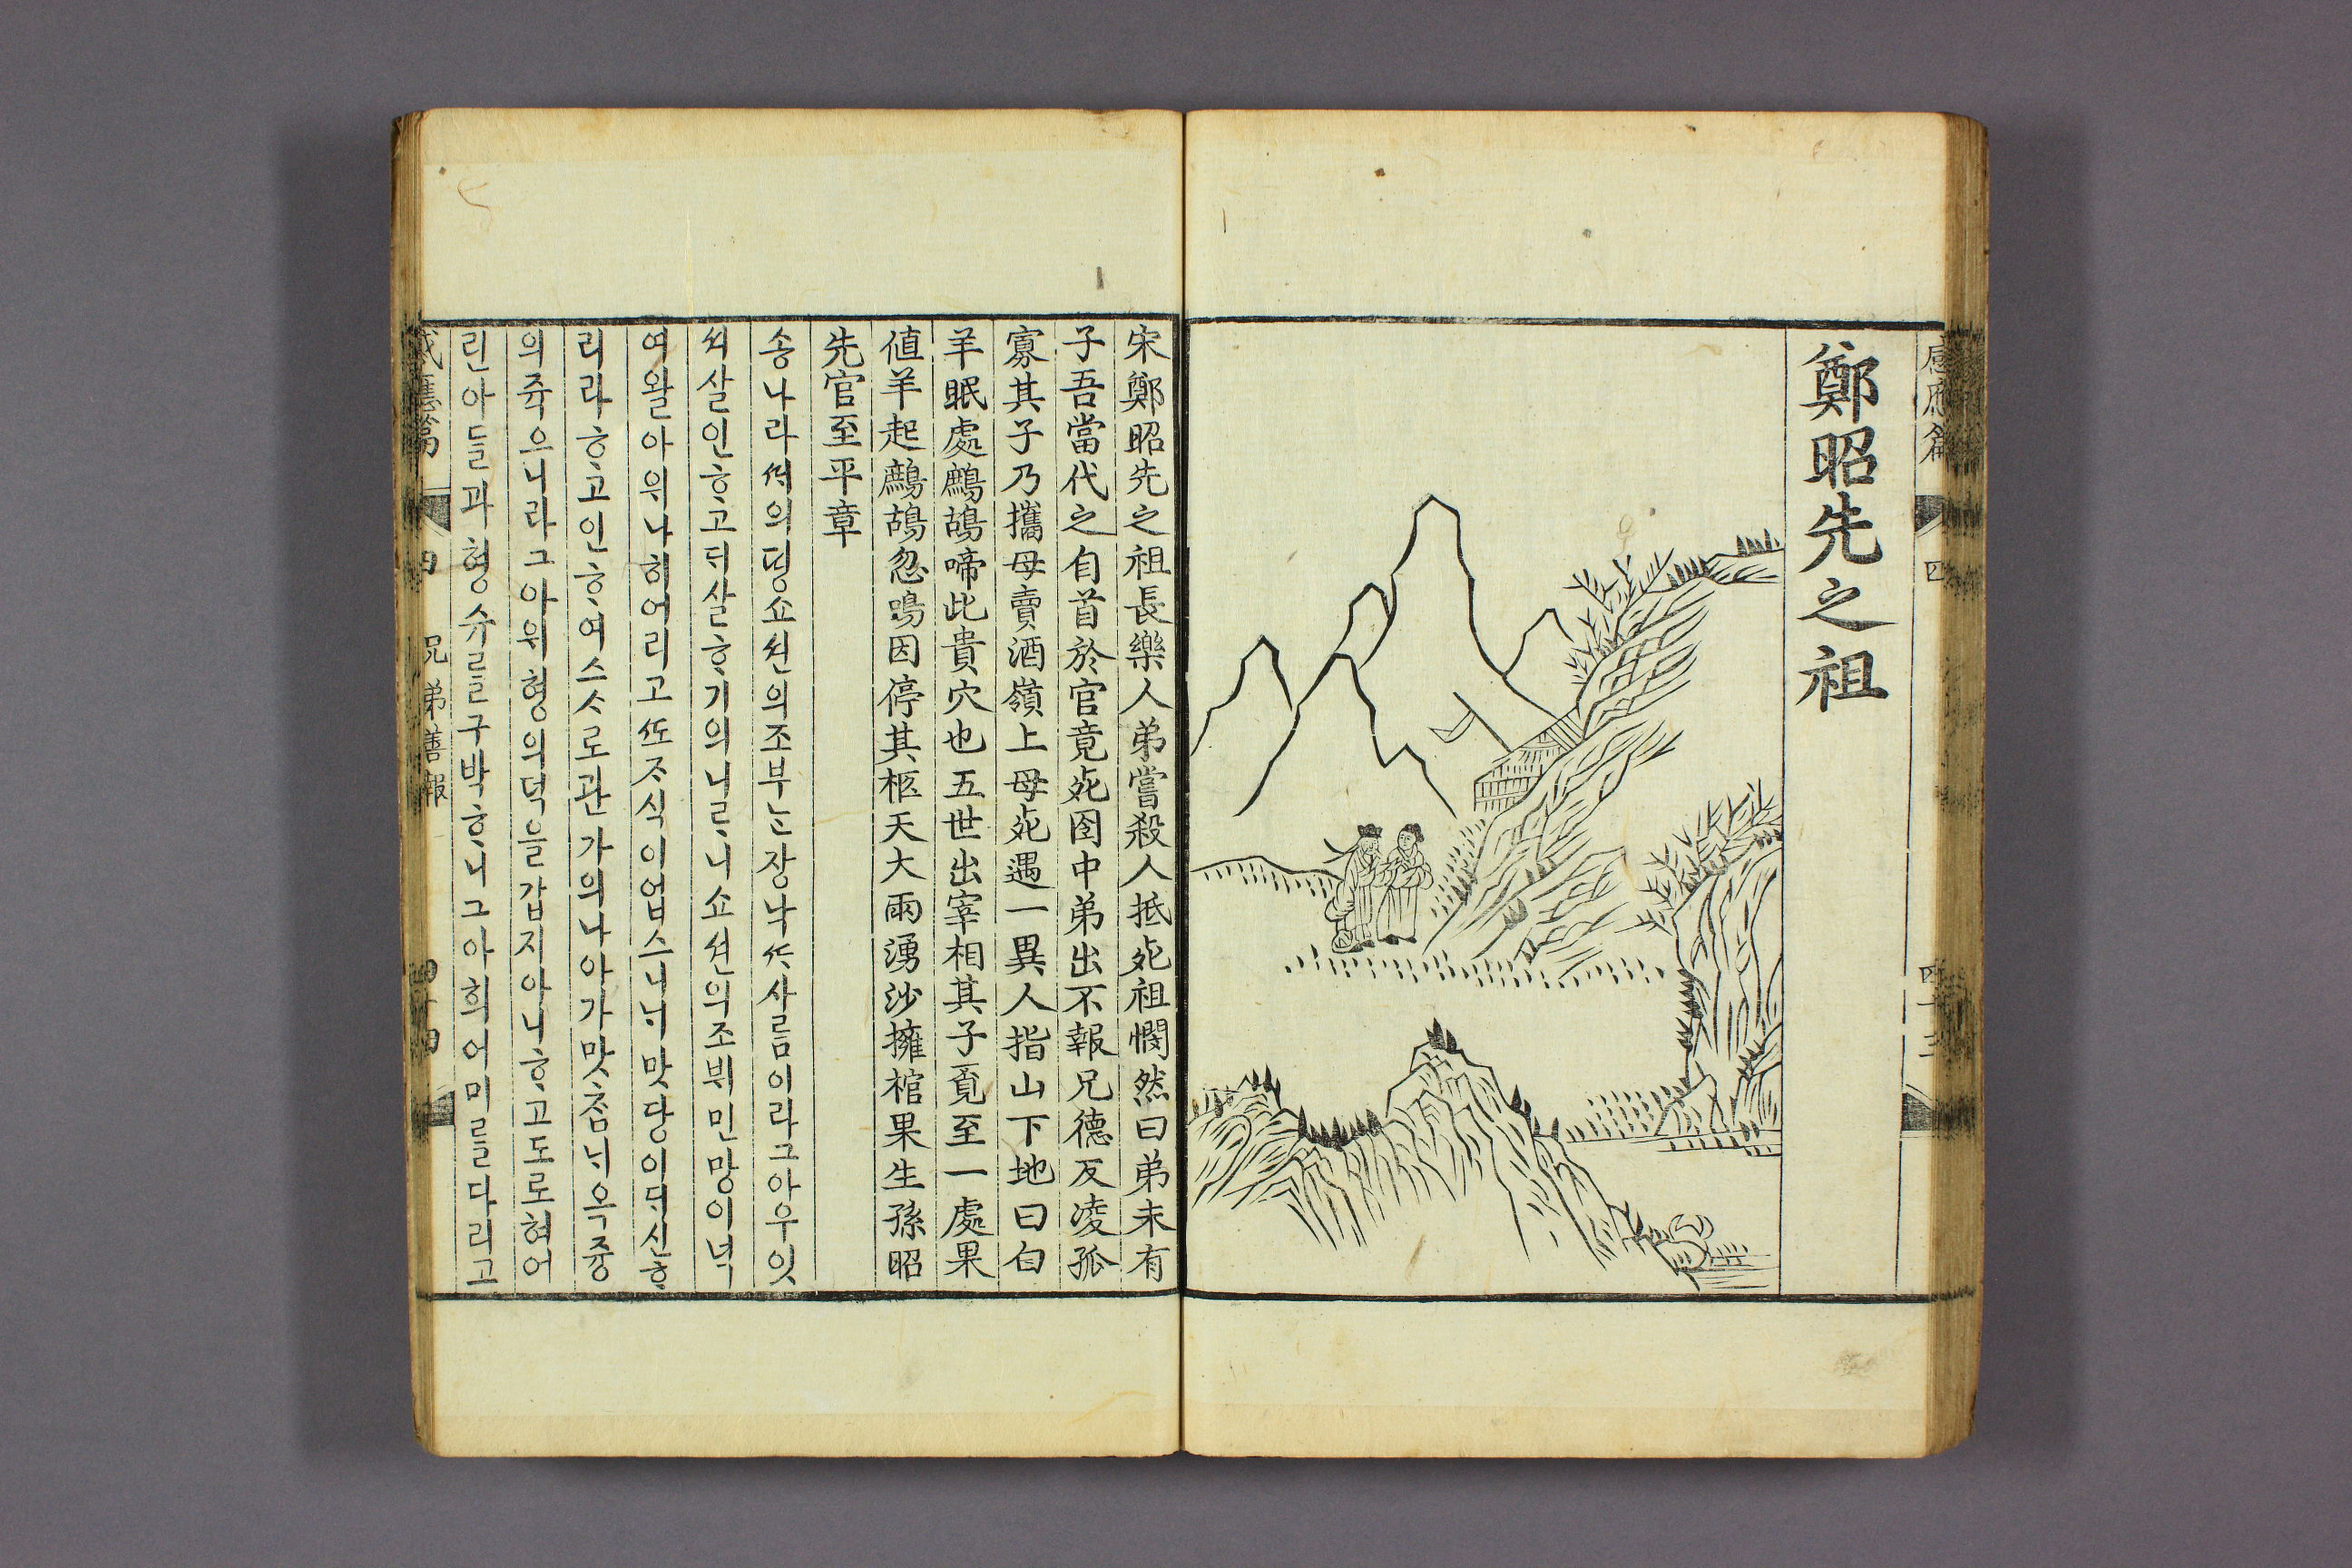 鄭昭先之祖
宋鄭昭先之祖長樂人弟嘗殺人抵死祖憫然曰弟未有
子吾當代之自首於官竟死囹中弟出不報兄德反凌孤
寡其子乃攜母賣酒嶺上母死遇一異人指山下地曰白
羊眠處鷓鴣啼此貴穴也五世出宰相其子覓至一處果
値羊起鷓鴣忽鳴因停其柩天大雨湧沙擁棺果生孫昭
先官至平章
송나라ᄯᅢ의뎡쇼션의조부ᄂᆞᆫ장낙ᄯᅡ사ᄅᆞᆷ이라그아우잇
ᄯᅢ살인ᄒᆞ고ᄃᆡ살ᄒᆞ기의니ᄅᆞ니쇼션의조뷔민망이넉
여왈아위나히어리고ᄯᅩᄌᆞ식이업스니ᄂᆡ맛당이ᄃᆡ신ᄒᆞ
리라ᄒᆞ고인ᄒᆞ여스ᄉᆞ로관가의나아가맛ᄎᆞᆷᄂᆡ옥즁
의쥭으니라그아위형의덕을갑지아니ᄒᆞ고도로혀어
린아들과형슈를구박ᄒᆞ니그아희어미를다리고
感應篇 四 兄弟善報 四十四